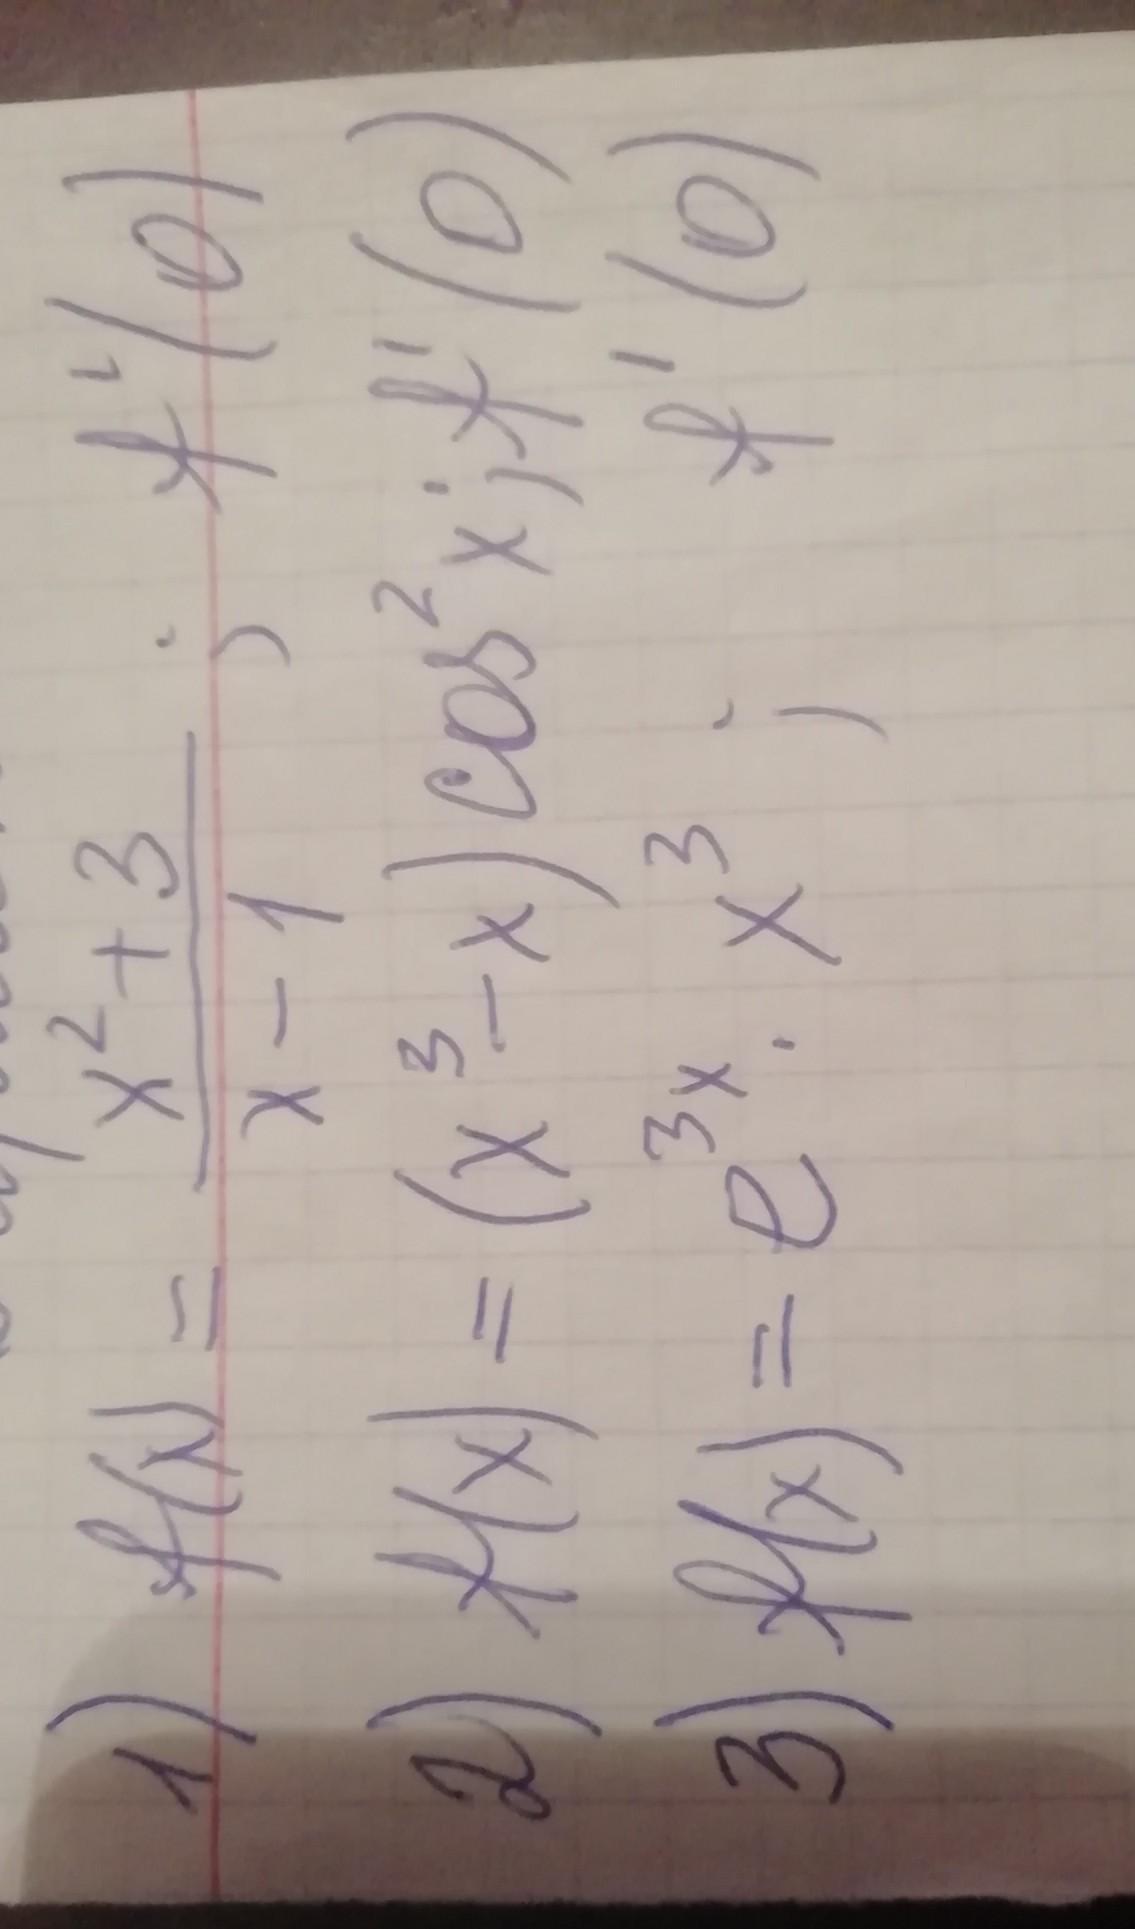 1) f(x) = \frac{x^2 + 3}{x - 1} ; f'(0)
2) f(x) = (x^3 - x) cos^2 x; f'(0)
3) f(x) = e^{3x} · x^3 ; f'(0)